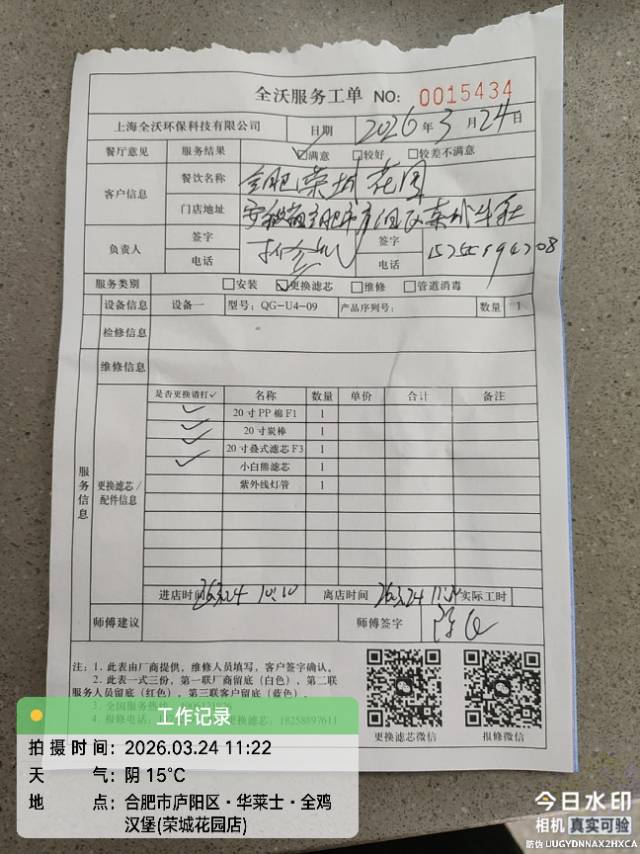 全沃服务工单 NO: 0015434
上海全沃环保科技有限公司 日期 2026年3月24日
餐厅意见 服务结果 ☑满意 ☐较好 ☐较差不满意
客户信息 餐饮名称 合肥荣城花园
门店地址 安徽省合肥市庐阳区
负责人 签字 签字
电话 电话
服务类别 ☐安装 ☑更换滤芯 ☐维修 ☐管道消毒
设备信息 设备一 型号: QG-U4-09 产品序列号: 数量 1
检修信息
维修信息
服务信息
更换滤芯/配件信息
是否更换请打✓ 名称 数量 单价 合计 备注
✓ 20寸PP棉F1 1
✓ 20寸炭棒 1
✓ 20寸叠式滤芯F3 1
✓ 小白熊滤芯 1
紫外线灯管 1
进店时间 26.3.24 10:10 离店时间 26.3.24 实际工时
师傅建议 师傅签字
注: 1. 此表由厂商提供，维修人员填写，客户签字确认。
2. 此表一式三份，第一联厂商留底（白色），第二联
服务人员留底（红色），第三联客户留底（蓝色）。
3. 全国服务热线
4. 报修电话: 更换滤芯: 18258897611
更换滤芯微信 报修微信
工作记录
拍摄时间: 2026.03.24 11:22
天气: 阴 15°C
地点: 合肥市庐阳区·华莱士·全鸡
汉堡(荣城花园店)
今日水印
相机 真实可验
防伪 UUGYDNNAX2HXCA